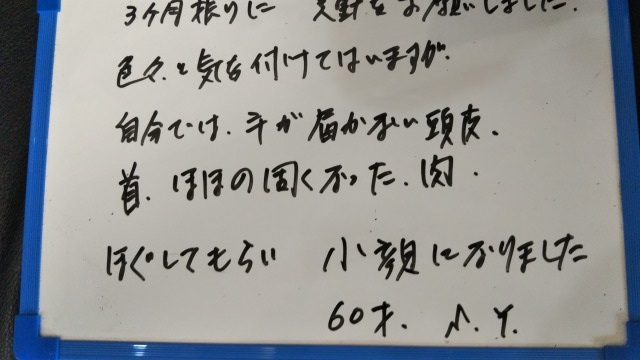 3ヶ月振りに 美針をお願いしました.
色々と気を付けてはいますが.
自分では、手が届かない頭皮、
首、ほほの固くなった、肉.
ほぐしてもらい 小顔になりました
60才. M.Y.